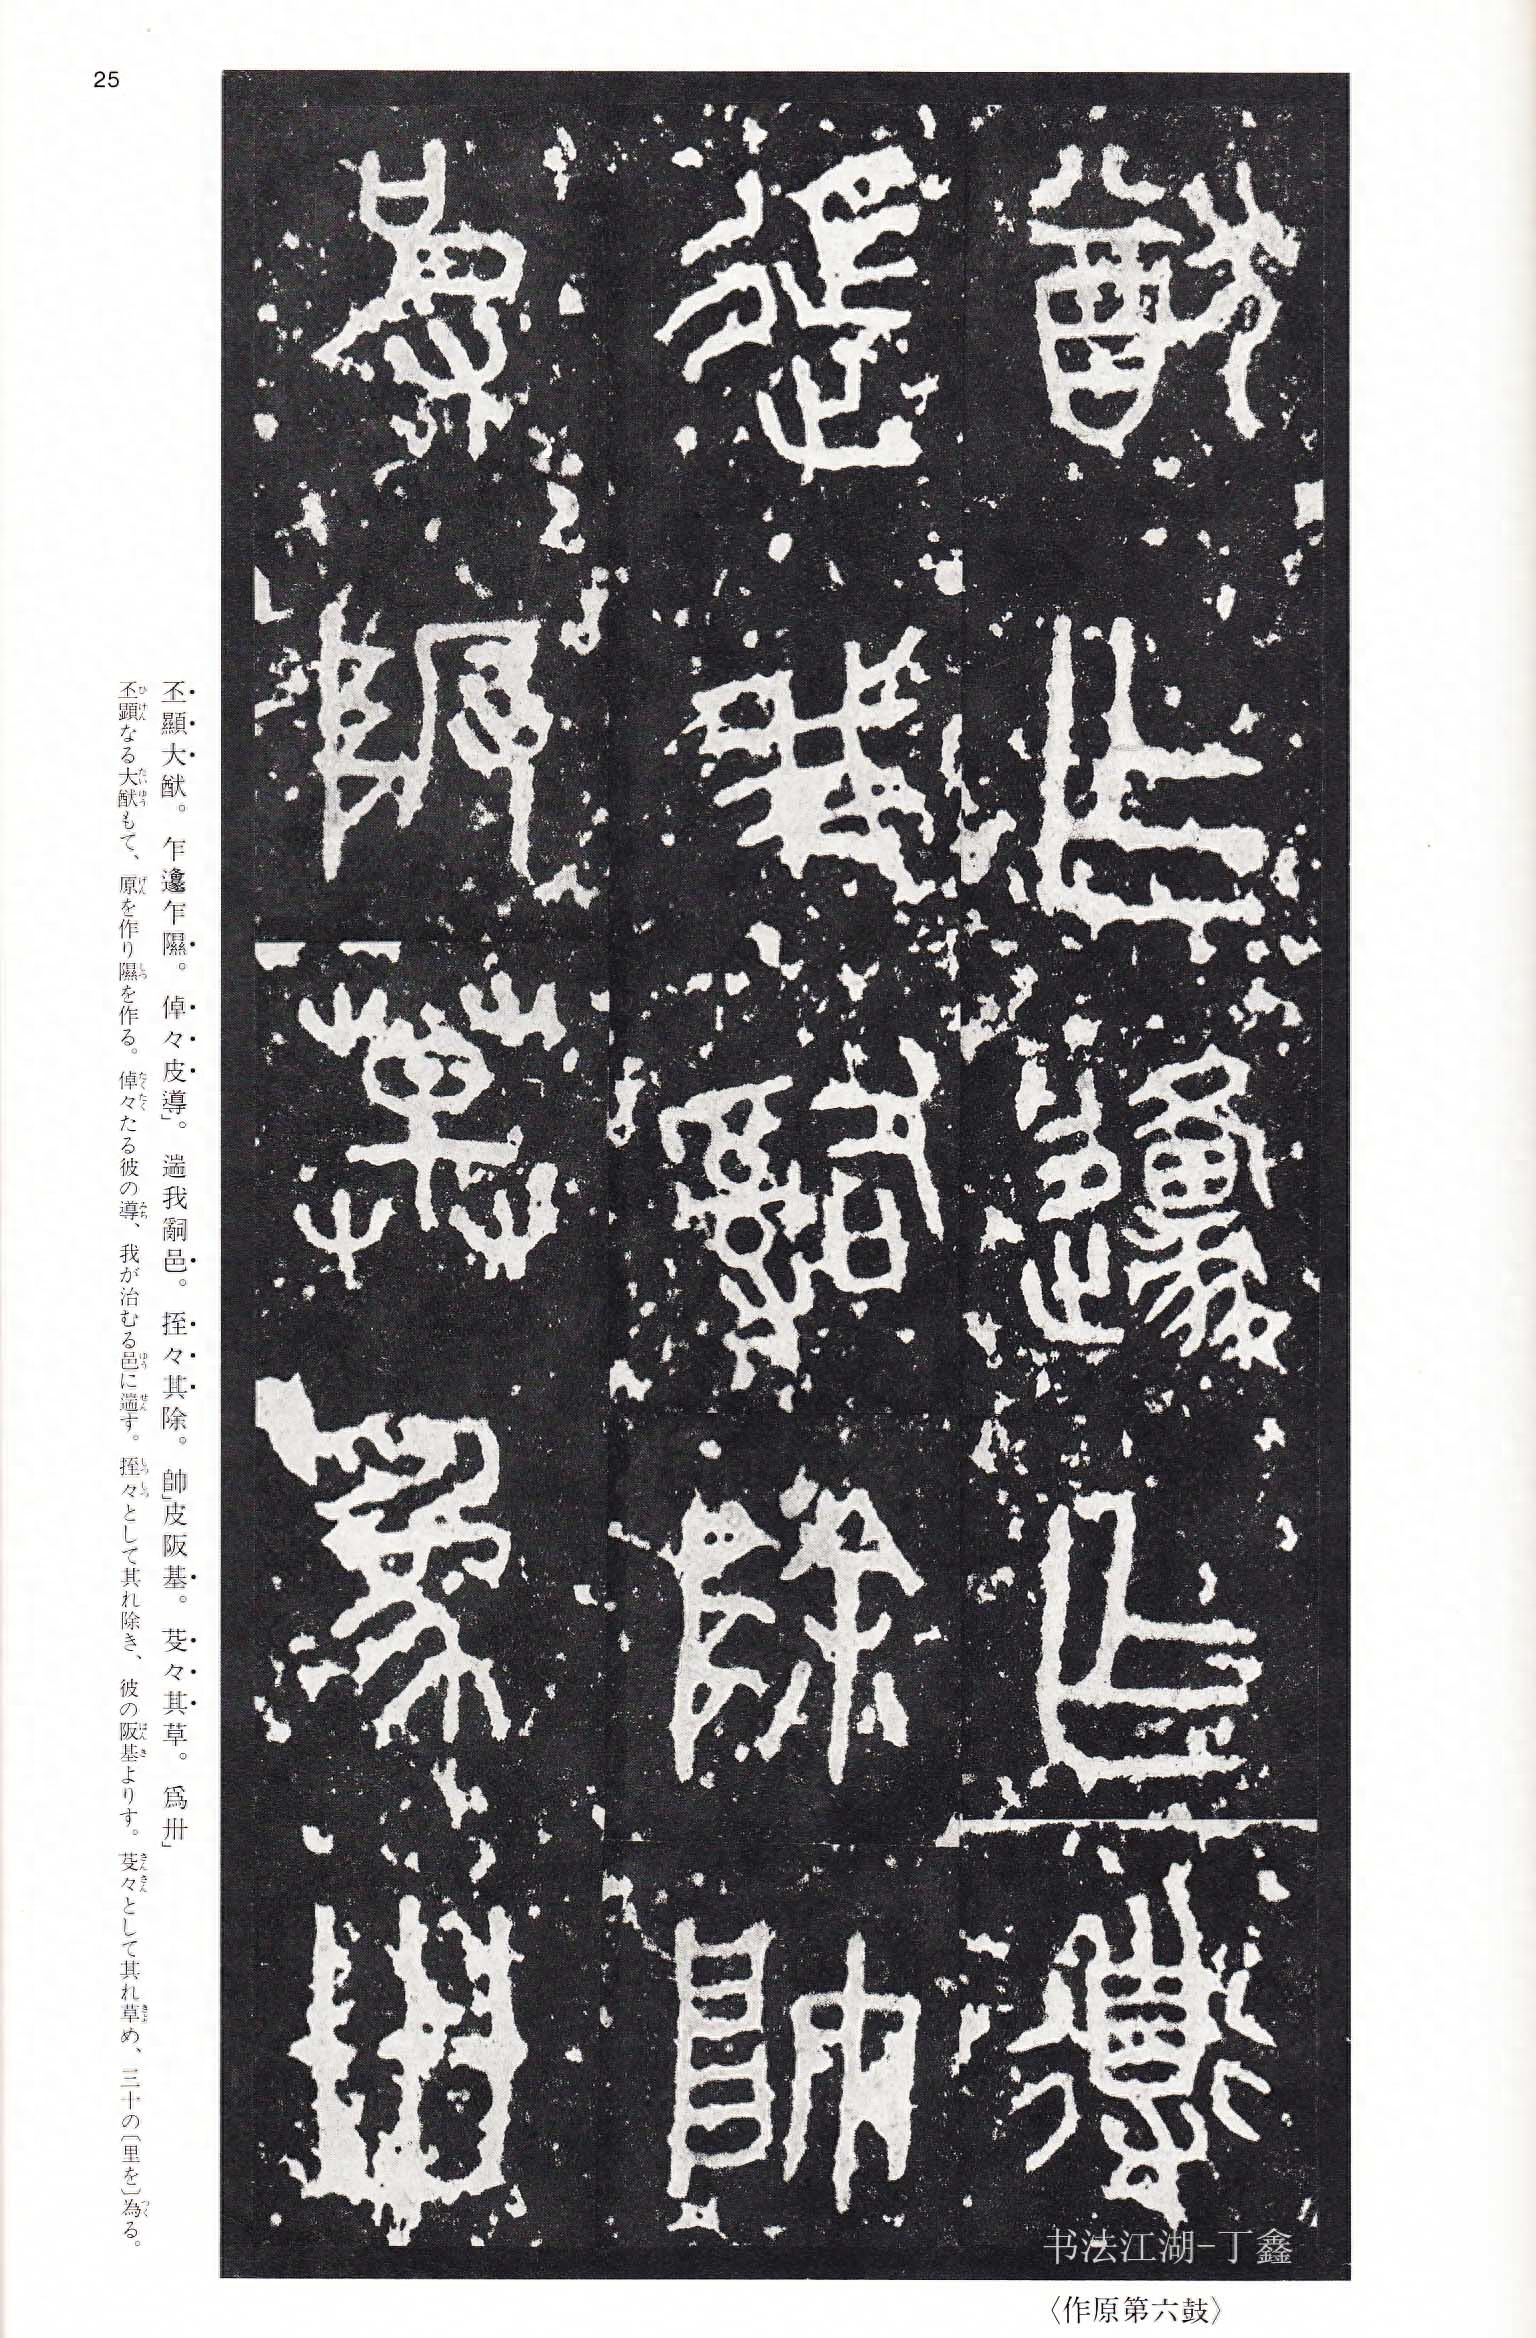 25
猷乍邍乍導
遄我𤔲除帥
草阪𦱤爲卅
丕顯大猷。乍邍乍隰。倬々皮導」。遄我嗣邑。挃々其除。帥」皮阪基。芟々其草。爲卅」
丕顕なる大猷もて、原を作り隰を作る。倬々たる彼の導、我が治むる邑に遄す。挃々として其れ除き、彼の阪基よりす。芟々として其れ草め、三十の〔里を〕為る。
书法江湖-丁鑫
〈作原第六鼓〉